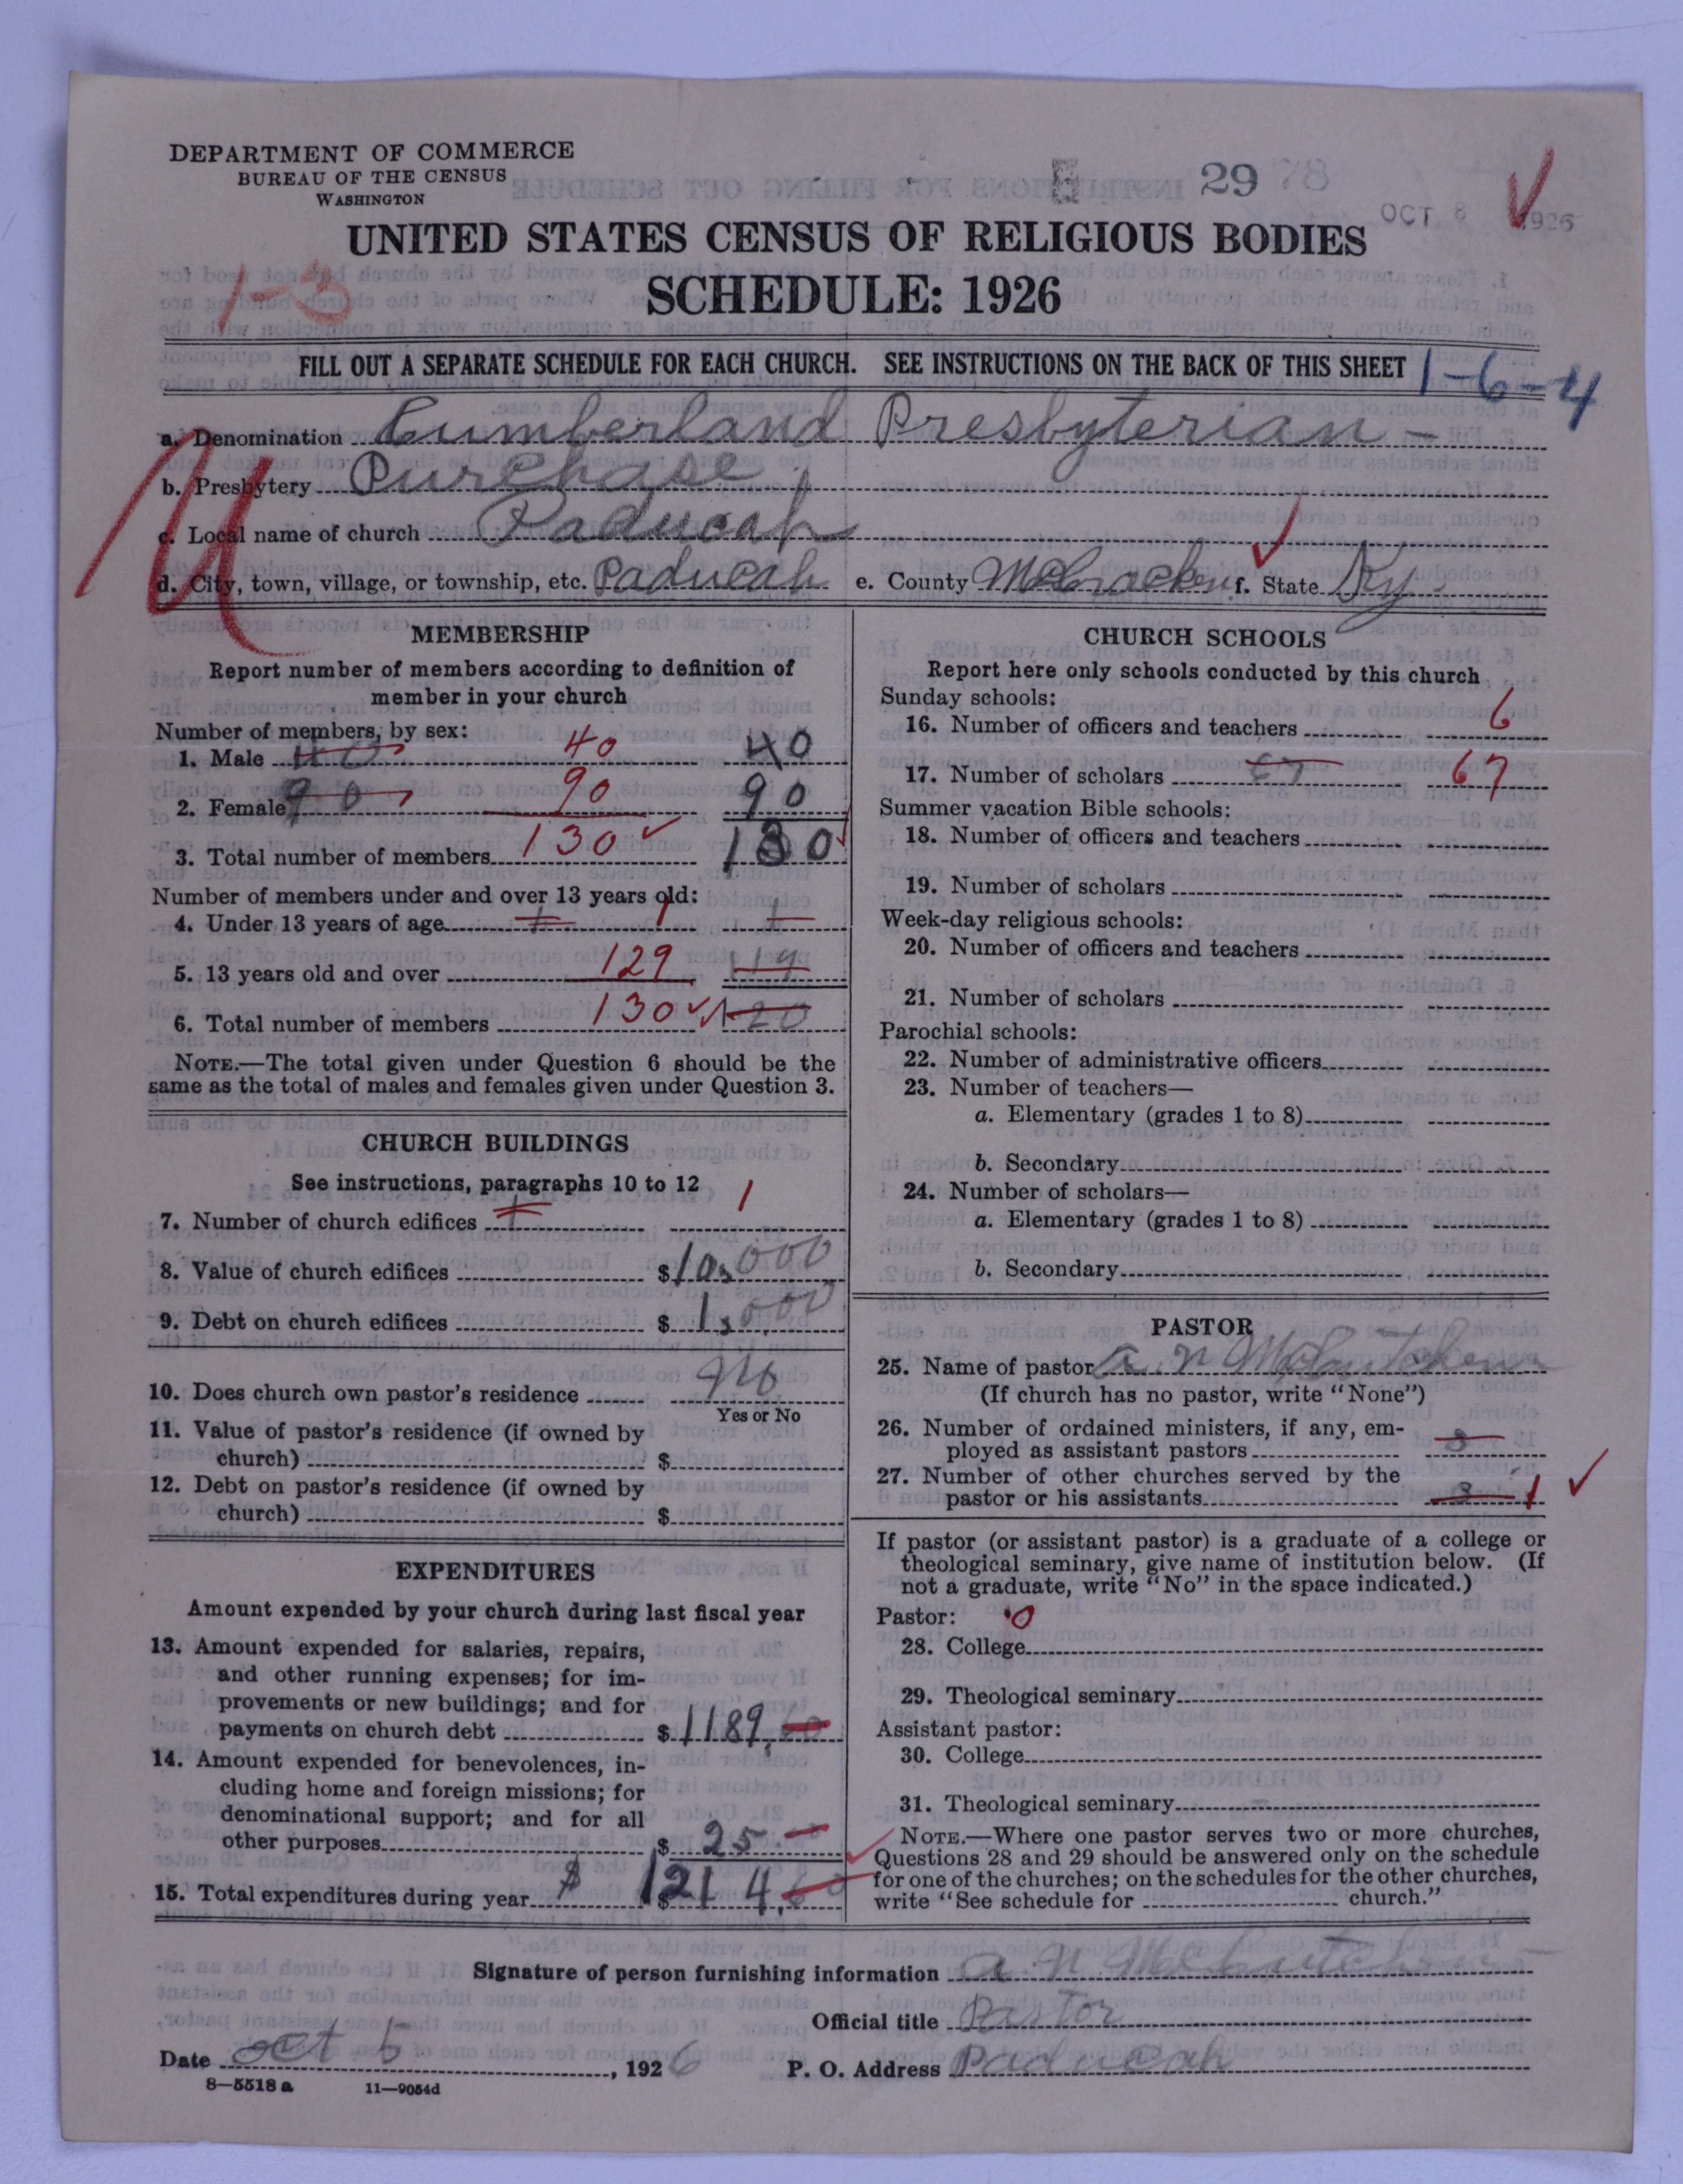 DEPARTMENT OF COMMERCE
BUREAU OF THE CENSUS
WASHINGTON
29 78
OCT 8 1926
UNITED STATES CENSUS OF RELIGIOUS BODIES
SCHEDULE: 1926
1-3
FILL OUT A SEPARATE SCHEDULE FOR EACH CHURCH. SEE INSTRUCTIONS ON THE BACK OF THIS SHEET 1-6-4
a. Denomination Cumberland Presbyterian -
b. Presbytery Purchase
c. Local name of church Paducah
d. City, town, village, or township, etc. Paducah e. County McCracken f. State Ky
MEMBERSHIP
Report number of members according to definition of
member in your church
Number of members, by sex:
1. Male 40 40 40
2. Female 90 90 90
3. Total number of members 130 130
Number of members under and over 13 years old:
4. Under 13 years of age 1 1 1
5. 13 years old and over 129 119
6. Total number of members 130 120
NOTE.—The total given under Question 6 should be the
same as the total of males and females given under Question 3.
CHURCH BUILDINGS
See instructions, paragraphs 10 to 12
7. Number of church edifices 1 1
8. Value of church edifices $ 10,000
9. Debt on church edifices $ 1,000
10. Does church own pastor's residence No
Yes or No
11. Value of pastor's residence (if owned by
church) $
12. Debt on pastor's residence (if owned by
church) $
EXPENDITURES
Amount expended by your church during last fiscal year
13. Amount expended for salaries, repairs,
and other running expenses; for im-
provements or new buildings; and for
payments on church debt $ 1189.60
14. Amount expended for benevolences, in-
cluding home and foreign missions; for
denominational support; and for all
other purposes $ 25.—
15. Total expenditures during year $ $ 1214.60
CHURCH SCHOOLS
Report here only schools conducted by this church
Sunday schools:
16. Number of officers and teachers 6
17. Number of scholars 67 67
Summer vacation Bible schools:
18. Number of officers and teachers
19. Number of scholars
Week-day religious schools:
20. Number of officers and teachers
21. Number of scholars
Parochial schools:
22. Number of administrative officers
23. Number of teachers—
a. Elementary (grades 1 to 8)
b. Secondary
24. Number of scholars—
a. Elementary (grades 1 to 8)
b. Secondary
PASTOR
25. Name of pastor A. N McCutchen
(If church has no pastor, write "None")
26. Number of ordained ministers, if any, em-
ployed as assistant pastors 3
27. Number of other churches served by the
pastor or his assistants 3 1
If pastor (or assistant pastor) is a graduate of a college or
theological seminary, give name of institution below. (If
not a graduate, write "No" in the space indicated.)
Pastor: 0
28. College
29. Theological seminary
Assistant pastor:
30. College
31. Theological seminary
NOTE.—Where one pastor serves two or more churches,
Questions 28 and 29 should be answered only on the schedule
for one of the churches; on the schedules for the other churches,
write "See schedule for church."
Signature of person furnishing information A N McCutchen
Official title Pastor
Date Oct 5, 1926 P. O. Address Paducah
8—5518 a 11—9054d